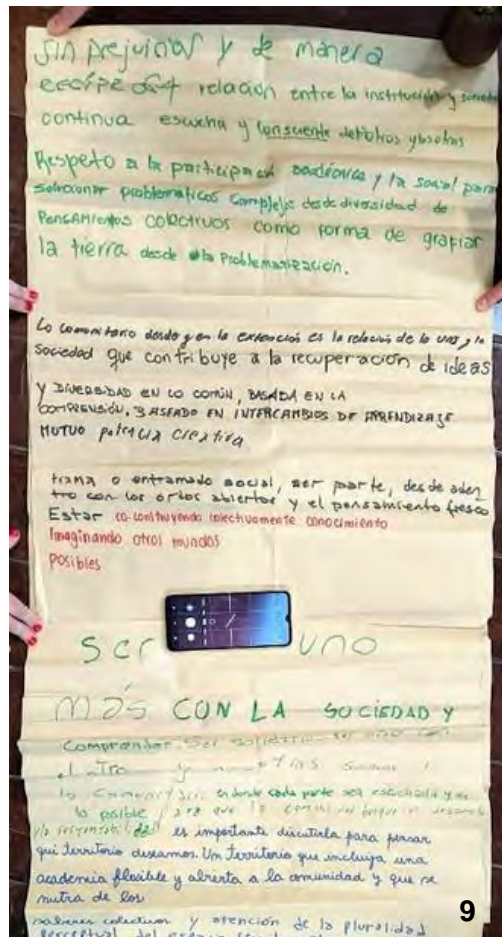 Sin prejuicios y de manera
relación entre la institución y sociedad
continua escucha y consciente de otros y otras
Respeto a la participación académica y la social para
solucionar problemáticas complejas desde diversidad de
PENSAMIENTOS colectivos como forma de grafiar
la tierra desde la Problematización.
Lo comunitario desde y en la extensión es la relación de la UNS y la
sociedad que contribuye a la recuperación de ideas
Y DIVERSIDAD EN LO COMÚN, BASADA EN LA
COMPRENSIÓN. BASEADO EN INTERCAMBIOS DE APRENDIZAJE
MUTUO potencia creativa
trama o entramado social, ser parte, desde aden
tro con los ojos abiertos y el pensamiento fresco
Estar co-construyendo colectivamente conocimiento
Imaginando otros mundos
Posibles
Ser uno
más CON LA SOCIEDAD Y
Comprender. Ser solidario ser uno con
el otro y
lo comunitario en donde cada parte sea escuchada y
lo posible para que lo
la sustentabilidad es importante discutirla para pensar
qué territorio deseamos. Un territorio que incluya una
academia flexible y abierta a la comunidad y que se
nutra de los
saberes colectivos y atención de la pluralidad
perceptual del
9